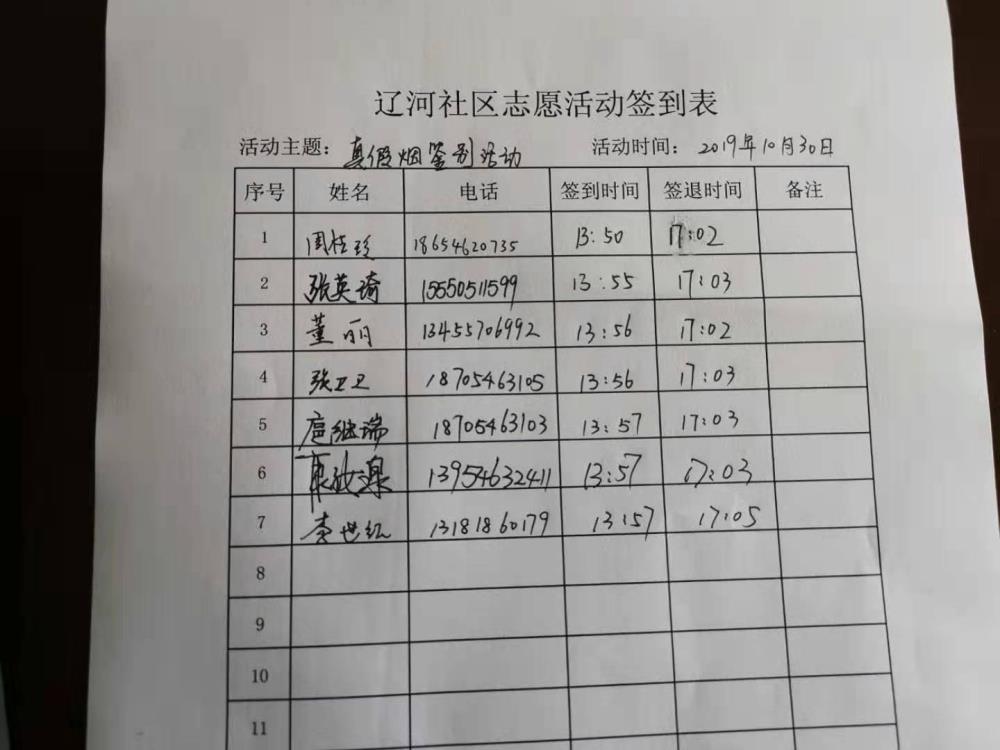 辽河社区志愿活动签到表
活动主题：真假烟鉴别活动 活动时间：2019年10月30日
序号 姓名 电话 签到时间 签退时间 备注
1 周桂珍 18654620735 13:50 17:02
2 张英琦 15550511599 13:55 17:03
3 董丽 13455706992 13:56 17:02
4 张卫卫 18705463105 13:56 17:03
5 扈继瑞 18705463103 13:57 17:03
6 13954632411 13:57 17:03
7 李世红 13181860179 13:57 17:05
8
9
10
11